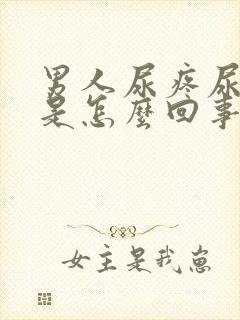 男人尿疼尿
是怎麼回事
女主是我崽